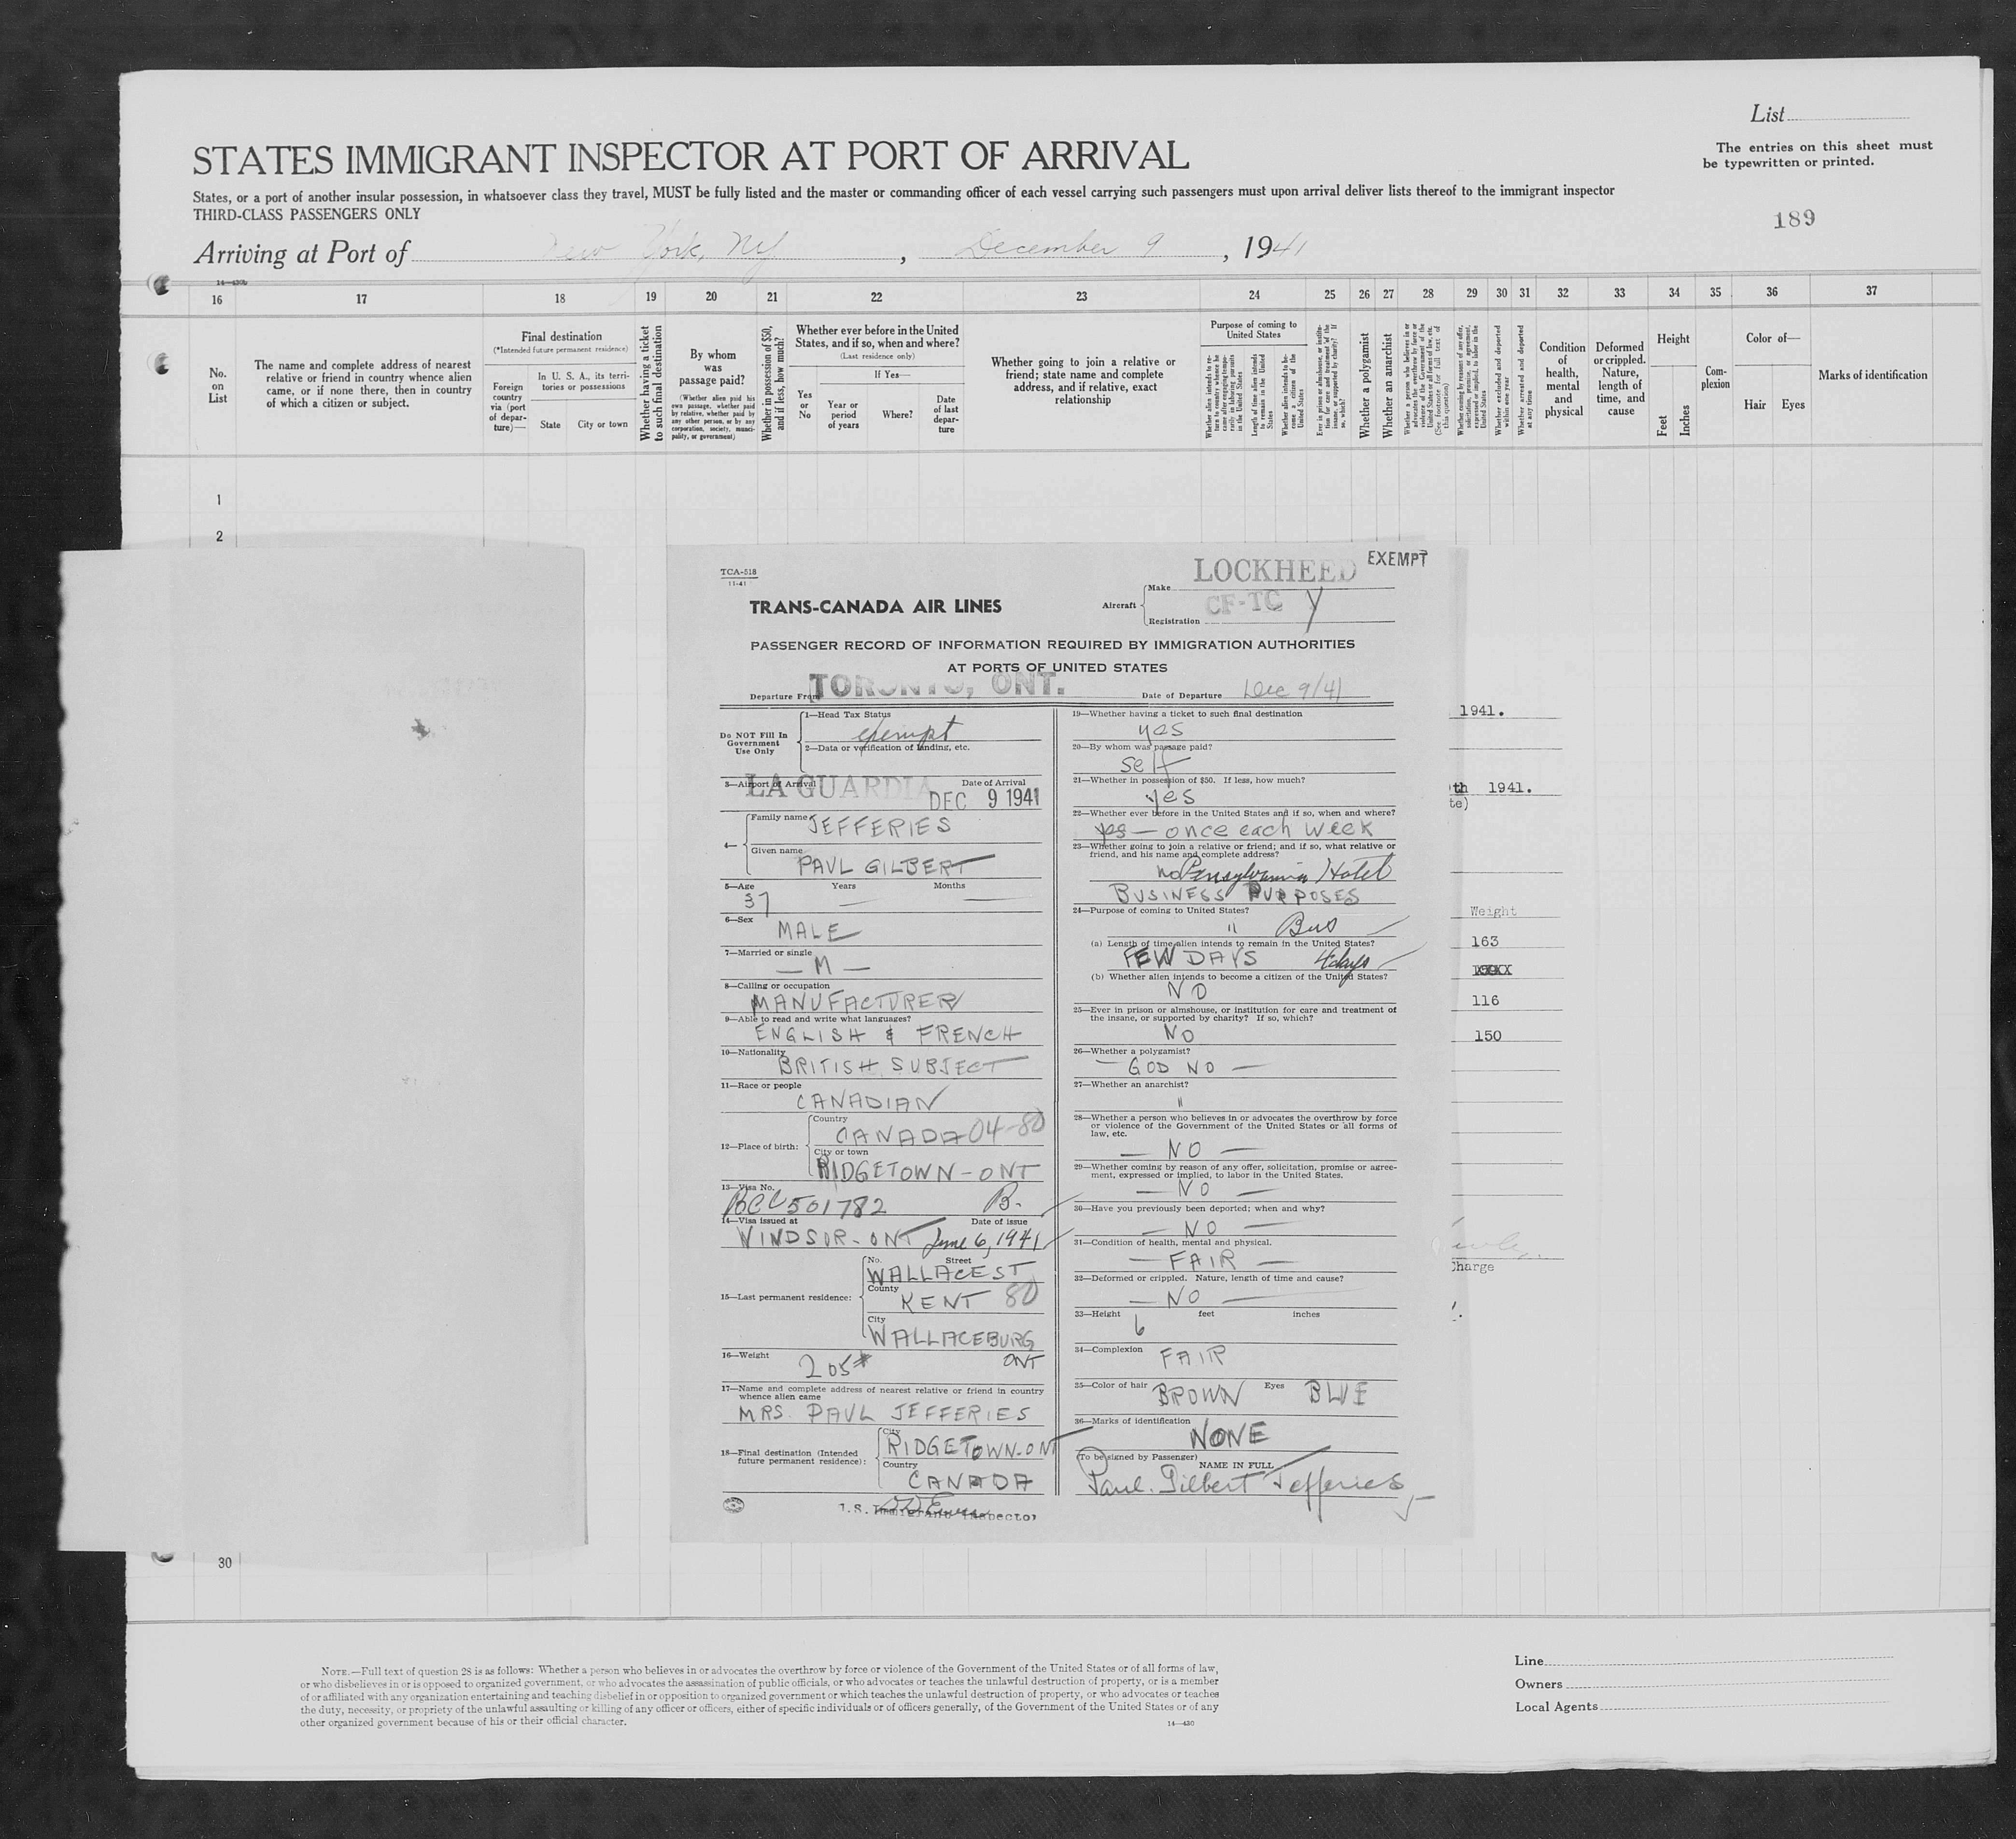 List
STATES IMMIGRANT INSPECTOR AT PORT OF ARRIVAL
The entries on this sheet must
be typewritten or printed.
States, or a port of another insular possession, in whatsoever class they travel, MUST be fully listed and the master or commanding officer of each vessel carrying such passengers must upon arrival deliver lists thereof to the immigrant inspector
THIRD-CLASS PASSENGERS ONLY
189
Arriving at Port of New York, NY, December 9, 1941
14-430b
16 17 18 19 20 21 22 23 24 25 26 27 28 29 30 31 32 33 34 35 36 37
No.
on
List
The name and complete address of nearest
relative or friend in country whence alien
came, or if none there, then in country
of which a citizen or subject.
Final destination
(*Intended future permanent residence)
Foreign
country
via (port
of depar-
ture)—
In U. S. A., its terri-
tories or possessions
State City or town
Whether having a ticket
to such final destination
By whom
was
passage paid?
(Whether alien paid his
own passage, whether paid
by relative, whether paid by
any other person, or by any
corporation, society, munci-
pality, or government)
Whether in possession of $50,
and if less, how much?
Whether ever before in the United
States, and if so, when and where?
(Last residence only)
Yes
or
No
If Yes—
Year or
period
of years
Where?
Date
of last
depar-
ture
Whether going to join a relative or
friend; state name and complete
address, and if relative, exact
relationship
Purpose of coming to
United States
Whether alien intends to re-
turn to country whence he
came after engaging tempo-
rarily in laboring pursuits
in the United States
Length of time alien intends
to remain in the United
States
Whether alien intends to be-
come a citizen of the
United States
Ever in prison or almshouse, or institu-
tion for care and treatment of the
insane, or supported by charity? If
so, which?
Whether a polygamist
Whether an anarchist
Whether a person who believes in or
advocates the overthrow by force or
violence of the Government of the
United States or all forms of law, etc.
(See footnote for full text of
this question)
Whether coming by reason of any offer,
solicitation, promise, or agreement,
expressed or implied, to labor in the
United States
Whether excluded and deported
within one year
Whether arrested and deported
at any time
Condition
of
health,
mental
and
physical
Deformed
or crippled.
Nature,
length of
time, and
cause
Height
Feet
Inches
Com-
plexion
Color of—
Hair Eyes
Marks of identification
1
2
TCA-518
11-41
LOCKHEED EXEMPT
TRANS-CANADA AIR LINES
Aircraft
Make
CF-TC Y
Registration
PASSENGER RECORD OF INFORMATION REQUIRED BY IMMIGRATION AUTHORITIES
AT PORTS OF UNITED STATES
Departure From TORONTO, ONT. Date of Departure Dec 9/41
Do NOT Fill In
Government
Use Only
1—Head Tax Status
exempt
2—Data or verification of landing, etc.
3—Airport of Arrival LA GUARDIA Date of Arrival
DEC 9 1941
4—
Family name JEFFERIES
Given name
PAUL GILBERT
5—Age Years Months
37
6—Sex
MALE
7—Married or single
— M —
8—Calling or occupation
MANUFACTURER
9—Able to read and write what languages?
ENGLISH & FRENCH
10—Nationality
BRITISH SUBJECT
11—Race or people
CANADIAN
12—Place of birth:
Country
CANADA 04-80
City or town
RIDGETOWN - ONT
13—Visa No.
BCC 501782 B.
14—Visa issued at Date of issue
WINDSOR - ONT June 6, 1941
15—Last permanent residence:
No. Street
WALLACE ST
County
KENT 80
City
WALLACEBURG
ONT
16—Weight
205#
17—Name and complete address of nearest relative or friend in country
whence alien came
MRS. PAUL JEFFERIES
18—Final destination (Intended
future permanent residence):
City
RIDGETOWN-ONT
Country
CANADA
U.S. Immigrant Inspector
19—Whether having a ticket to such final destination
yes
20—By whom was passage paid?
self
21—Whether in possession of $50. If less, how much?
yes
22—Whether ever before in the United States and if so, when and where?
yes — once each week
23—Whether going to join a relative or friend; and if so, what relative or
friend, and his name and complete address?
no Pensylvania Hotel
BUSINESS PURPOSES
24—Purpose of coming to United States?
" Bus
(a) Length of time alien intends to remain in the United States?
FEW DAYS 4 days
(b) Whether alien intends to become a citizen of the United States?
NO
25—Ever in prison or almshouse, or institution for care and treatment of
the insane, or supported by charity? If so, which?
NO
26—Whether a polygamist?
— GOD NO —
27—Whether an anarchist?
"
28—Whether a person who believes in or advocates the overthrow by force
or violence of the Government of the United States or all forms of
law, etc.
— NO —
29—Whether coming by reason of any offer, solicitation, promise or agree-
ment, expressed or implied, to labor in the United States.
— NO —
30—Have you previously been deported; when and why?
— NO —
31—Condition of health, mental and physical.
— FAIR —
32—Deformed or crippled. Nature, length of time and cause?
— NO —
33—Height feet inches
6
34—Complexion
FAIR
35—Color of hair BROWN Eyes BLUE
36—Marks of identification
NONE
(To be signed by Passenger)
NAME IN FULL
Paul. Gilbert Jefferies
1941.
th 1941.
te)
Weight
163
116
150
Charge
30
NOTE.—Full text of question 28 is as follows: Whether a person who believes in or advocates the overthrow by force or violence of the Government of the United States or of all forms of law,
or who disbelieves in or is opposed to organized government, or who advocates the assassination of public officials, or who advocates or teaches the unlawful destruction of property, or is a member
of or affiliated with any organization entertaining and teaching disbelief in or opposition to organized government or which teaches the unlawful destruction of property, or who advocates or teaches
the duty, necessity, or propriety of the unlawful assaulting or killing of any officer or officers, either of specific individuals or of officers generally, of the Government of the United States or of any
other organized government because of his or their official character.
14—430
Line
Owners
Local Agents